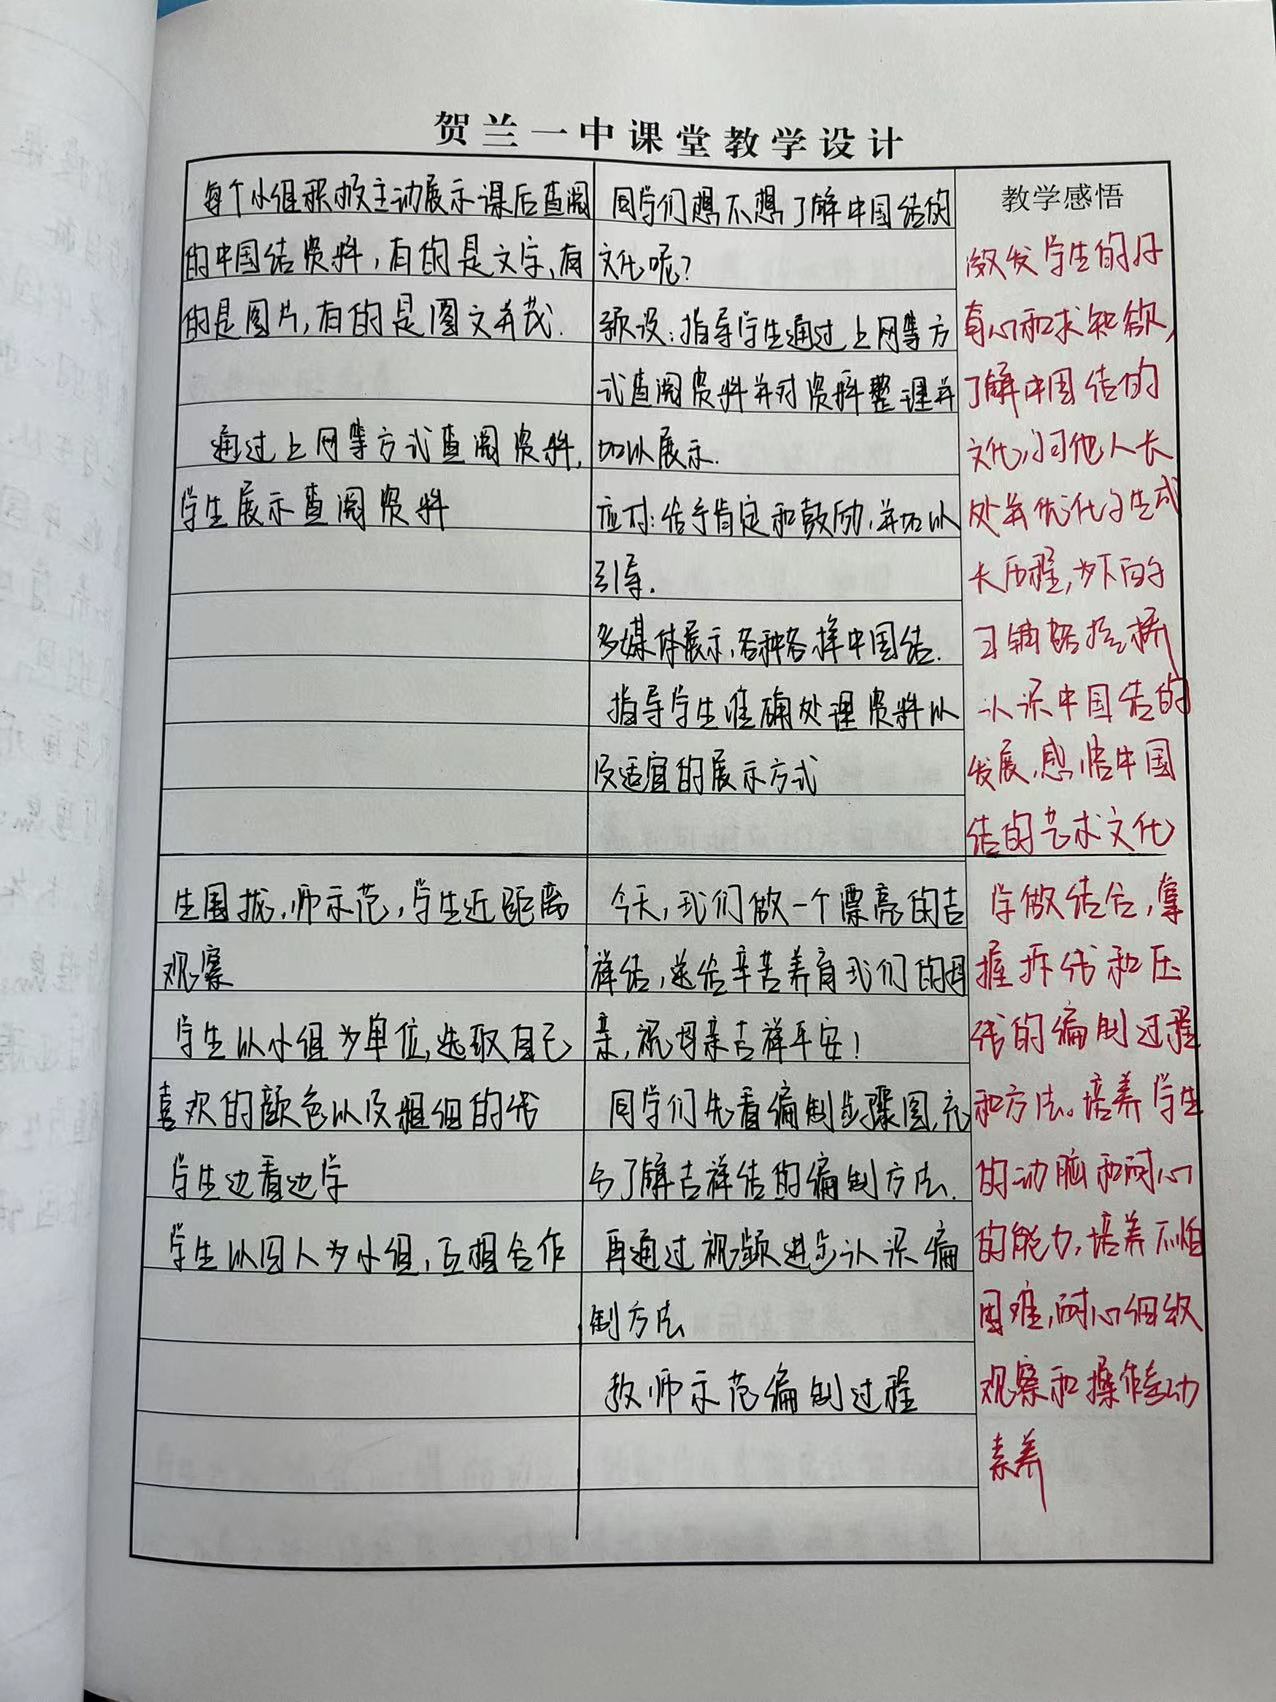 贺兰一中课堂教学设计
每个小组积极主动展示课后查阅
的中国结资料,有的是文字,有
的是图片,有的是图文并茂.
通过上网等方式查阅资料,
学生展示查阅资料
同学们想不想了解中国结的
文化呢?
预设:指导学生通过上网等方
式查阅资料并对资料整理并
加以展示.
应对:给予肯定和鼓励,并加以
引导.
多媒体展示,各种各样中国结.
指导学生准确处理资料以
及适宜的展示方式
教学感悟
激发学生的好
奇心和求知欲,
了解中国结的
文化,学习他人长
处并优化学生成
长历程,为下面学
习铺路搭桥
认识中国结的
发展,感悟中国
结的艺术文化
生围拢,师示范,学生近距离
观察
学生以小组为单位,选取自己
喜欢的颜色以及粗细的线
学生边看边学
学生以四人为小组,互相合作
今天,我们做一个漂亮的吉
祥结,送给辛苦养育我们的母
亲,祝母亲吉祥平安!
同学们先看编制步骤图,充
分了解吉祥结的编制方法.
再通过视频进步认识编
制方法
教师示范编制过程
学做结合,掌
握拆线和压
线的编制过程
和方法。培养学生
的动脑和耐心
的能力,培养不怕
困难,耐心细致
观察和操作劳动
素养